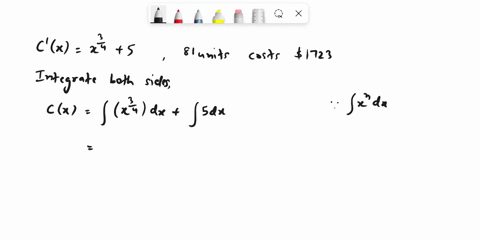 C'(x) = x^{3/4} + 5 , 81 units costs $1723
Integrate both sides,
C(x) = ∫ (x^{3/4}) dx + ∫ 5 dx ∵ ∫ x^n dx
=